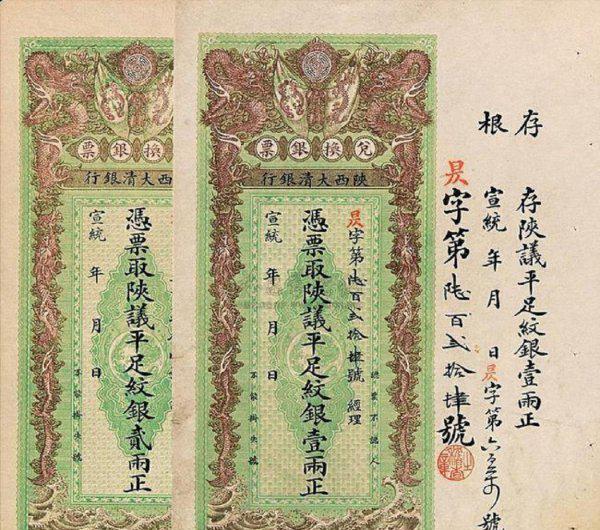 存根
存陝議平足紋銀壹兩正
宣統 年 月 日 昃字第 號
昃字第陸百弍拾肆號
兌換銀票
陝西大清銀行
認票不認人
昃字第陸百弍拾肆號 經理
憑票取陝議平足紋銀壹兩正
宣統 年 月 日
不能掛失號
換銀票
陝西大清銀行
憑票取陝議平足紋銀貳兩正
宣統 年 月 日
不能掛失號